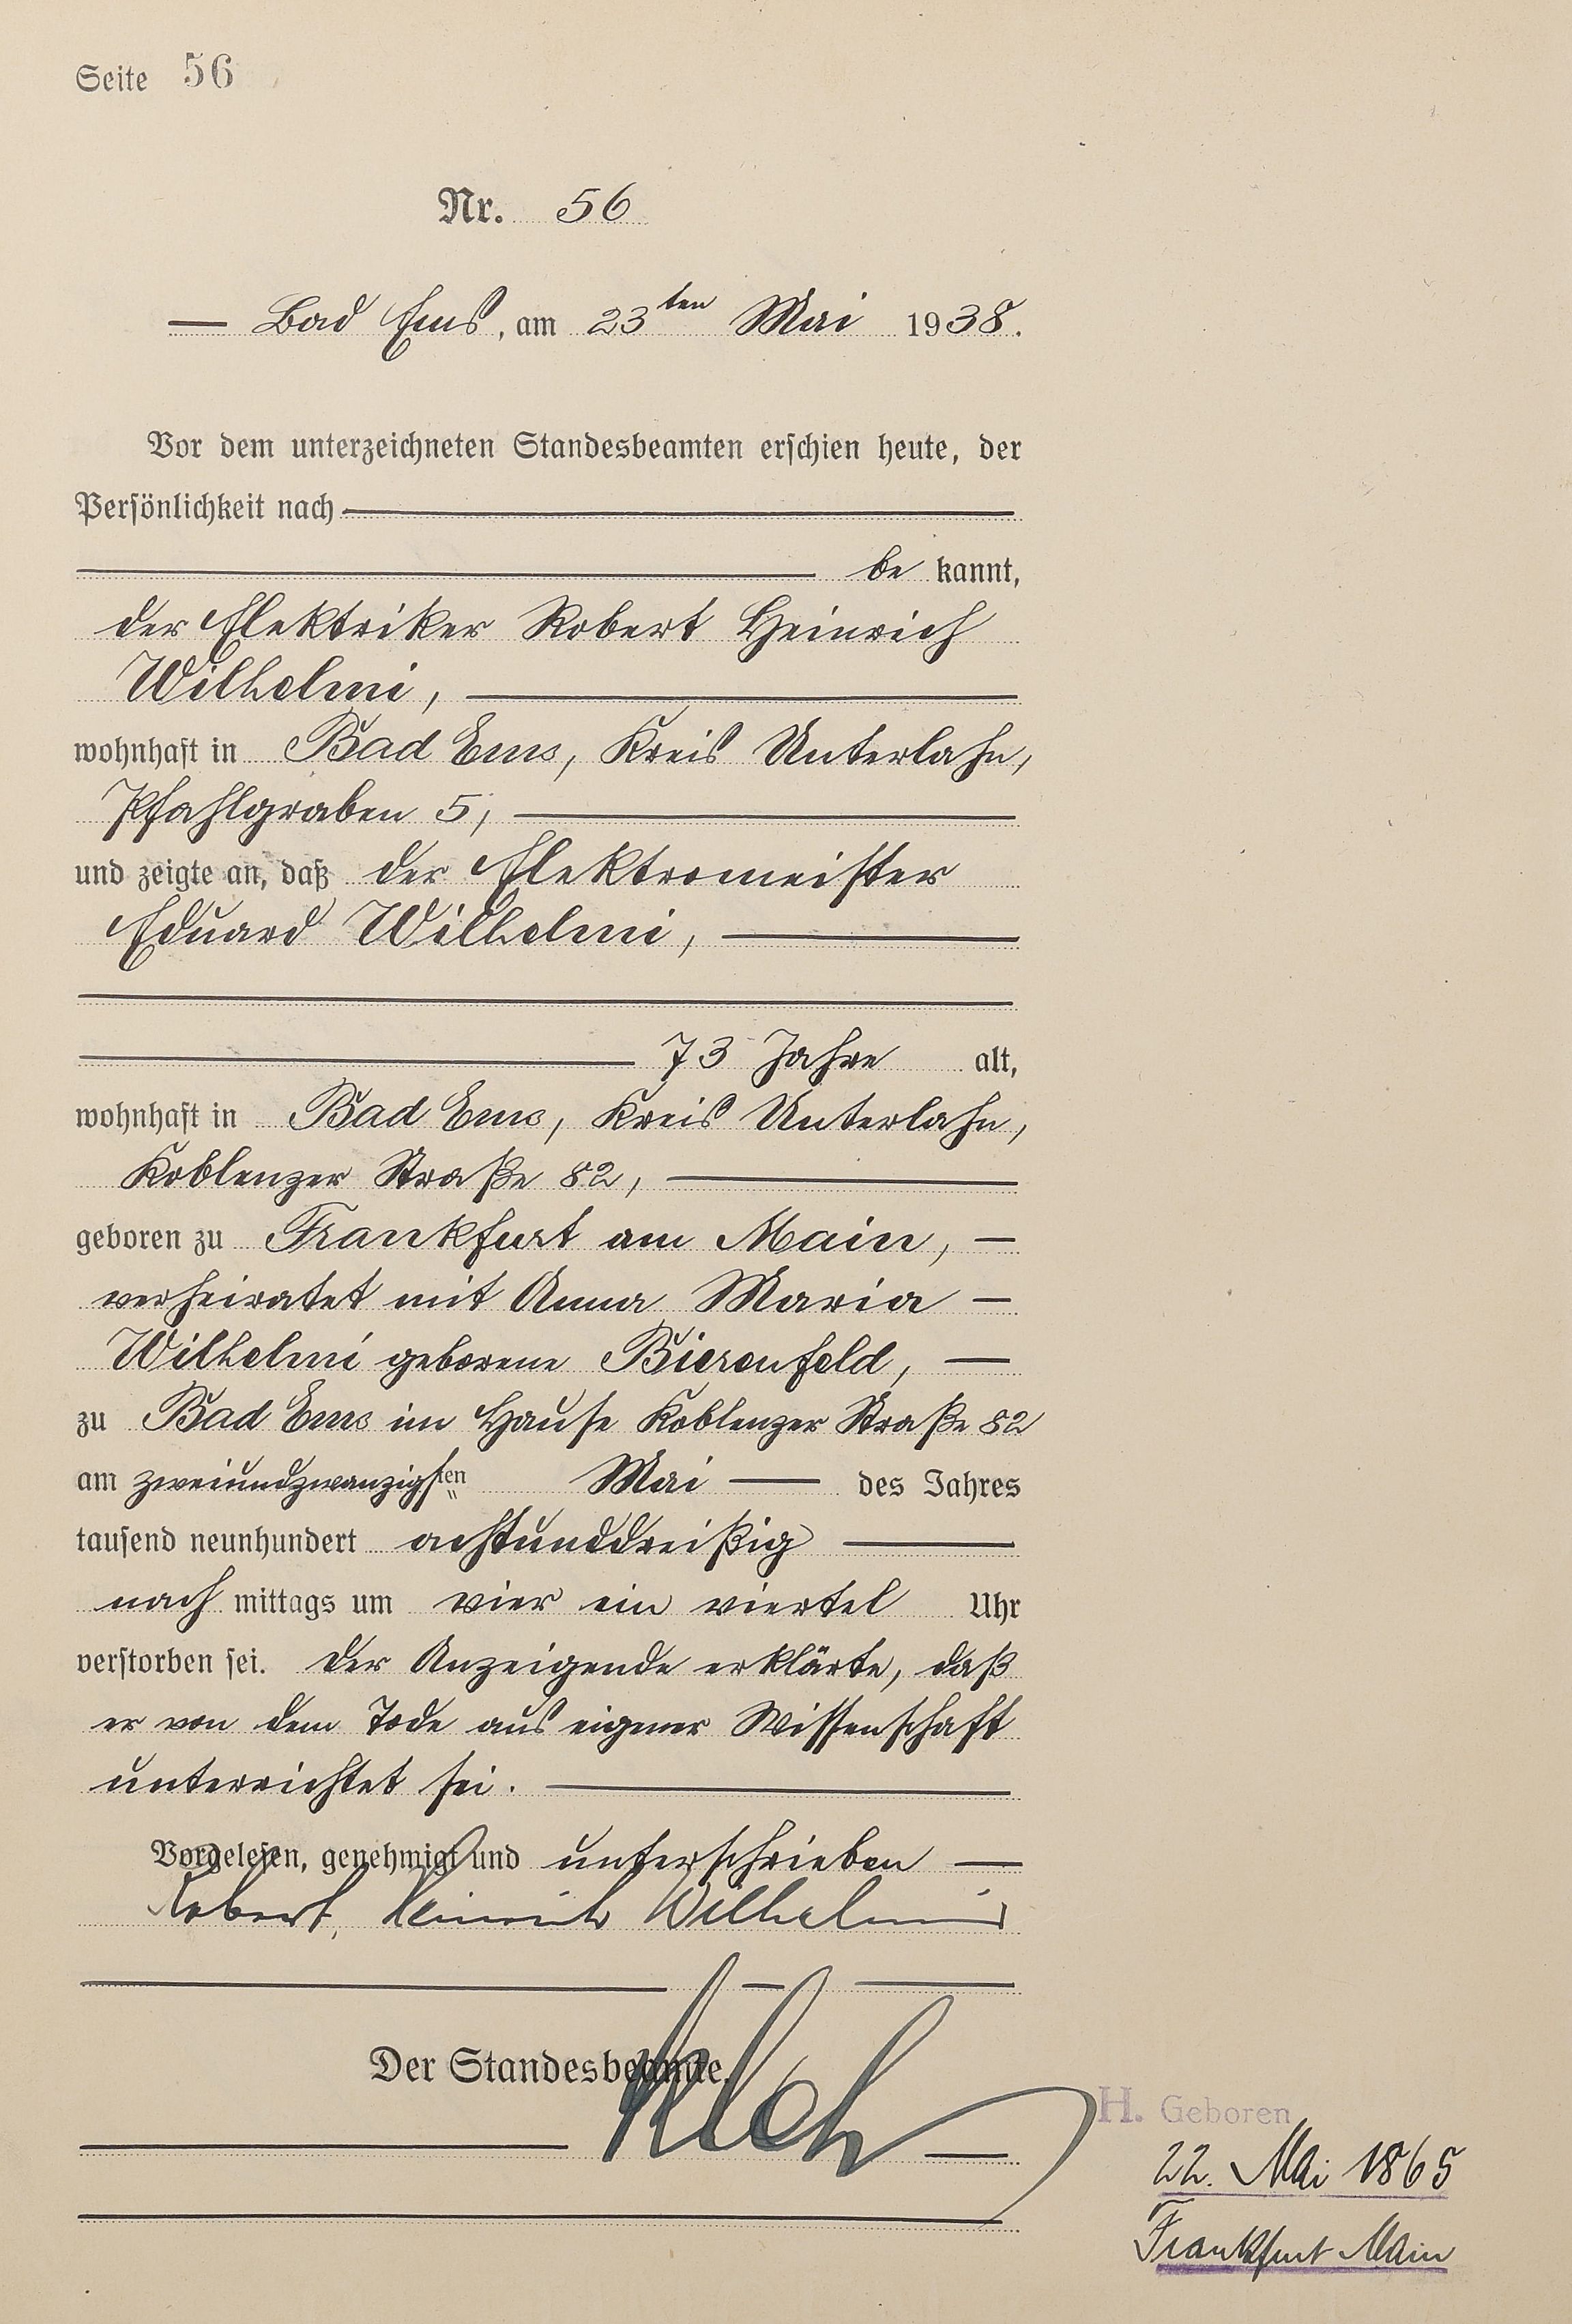 Seite 56
Nr. 56
— Bad Ems, am 23ten Mai 1938.
Vor dem unterzeichneten Standesbeamten erschien heute, der
Persönlichkeit nach
be kannt,
der Elektriker Robert Heinrich
Wilhelmi,
wohnhaft in Bad Ems, Kreis Unterlahn,
Pfahlgraben 5,
und zeigte an, daß der Elektromeister
Eduard Wilhelmi,
73 Jahre alt,
wohnhaft in Bad Ems, Kreis Unterlahn,
Koblenzer Straße 82,
geboren zu Frankfurt am Main, —
verheiratet mit Anna Maria —
Wilhelmi geborene Bierenfeld, —
zu Bad Ems im Hause Koblenzer Straße 82
am zweiundzwanzigsten Mai — des Jahres
tausend neunhundert achtunddreißig
nach mittags um vier ein viertel Uhr
verstorben sei. Der Anzeigende erklärte, daß
er von dem Tode aus eigener Wissenschaft
unterrichtet sei.
Vorgelesen, genehmigt und unterschrieben —
Robert Heinrich Wilhelmi
Der Standesbeamte.
H. Geboren
22. Mai 1865
Frankfurt Main